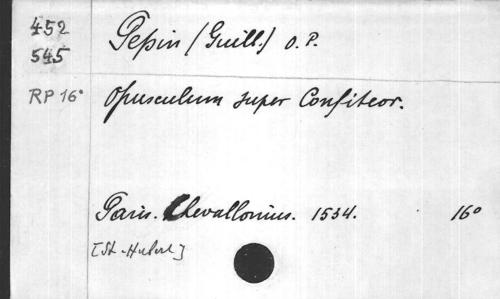 452
545
Pepin (Guill.) O. P.
RP 16°
Opusculum super Confiteor.
Paris. Chevallonius. 1534. 16°
[St-Hubert]